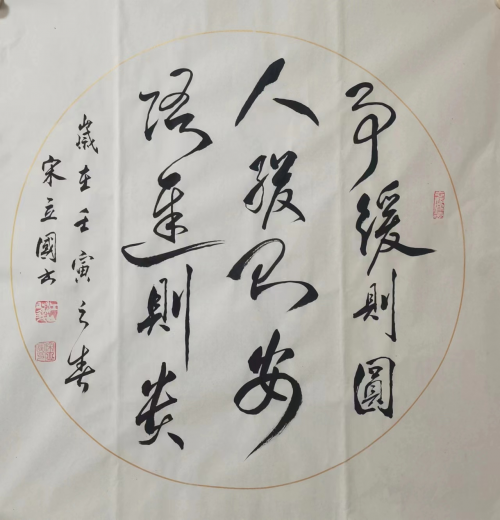 事緩則圓
人緩則安
語遲則貴
歲在壬寅之春
宋立國書